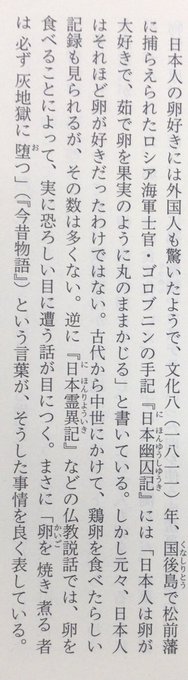 日本人の卵好きには外国人も驚いたようで、文化八（一八一一）年、国後島で松前藩
に捕らえられたロシア海軍士官・ゴロブニンの手記『日本幽囚記』には「日本人は卵が
大好きで、茹で卵を果実のように丸のままかじる」と書いている。しかし元々、日本人
はそれほど卵が好きだったわけではない。古代から中世にかけて、鶏卵を食べたらしい
記録も見られるが、その数は多くない。逆に『日本霊異記』などの仏教説話では、卵を
食べることによって、実に恐ろしい目に遭う話が目につく。まさに「卵を 焼き煮る 者
は 必ず 灰地獄に 堕つ」（『今昔物語』）という言葉が、そうした事情を良く表している。